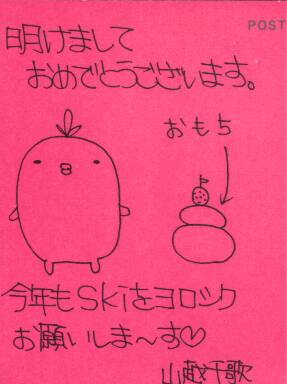 POST
明けまして
おめでとうございます。
おもち
今年もSkiをヨロシク
お願いしま〜す♡
山越千歌